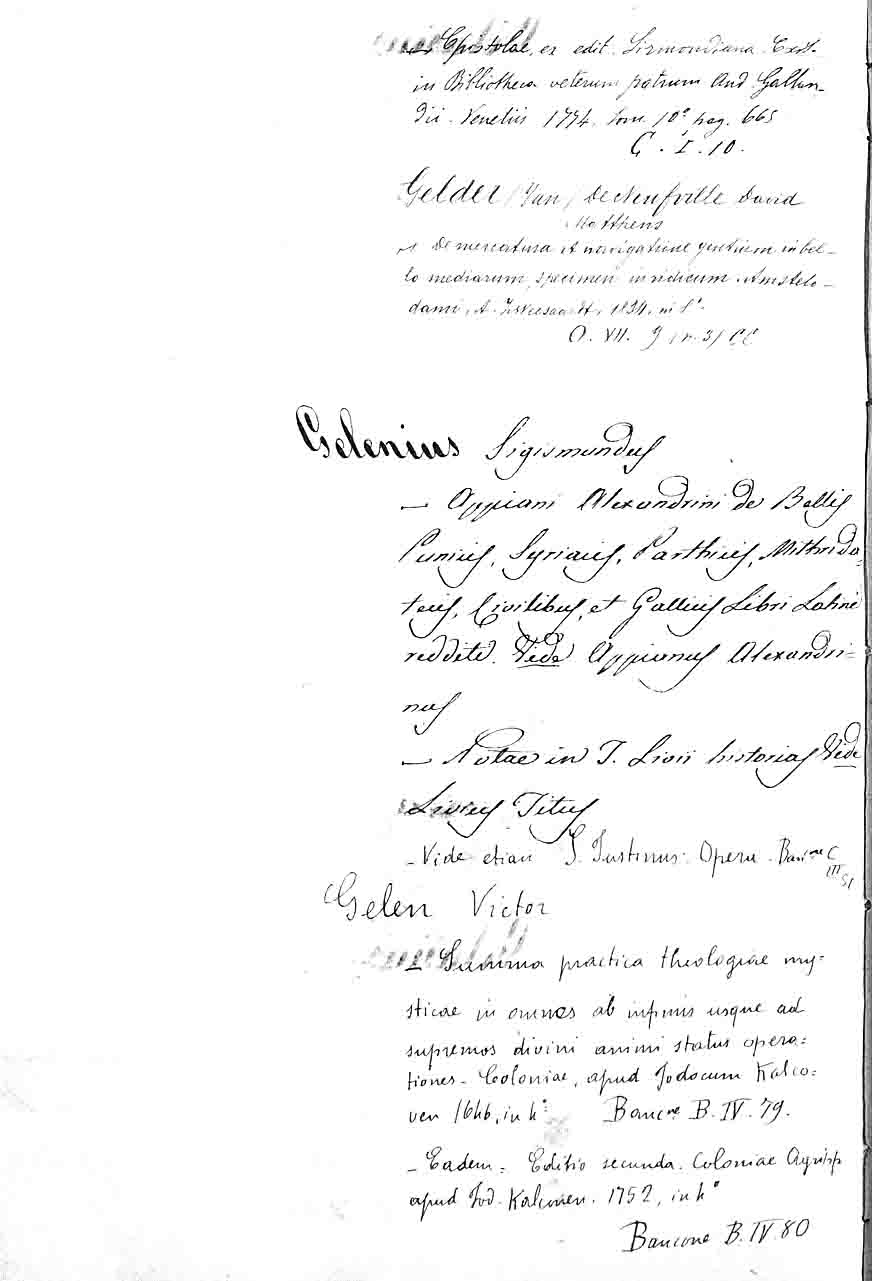 — Epistolae, ex edit. Sirmondiana. Exst.
in Bibliotheca veterum patrum And. Gallan-
dii. Venetiis 1774. tom. 10° pag. 665
G. I. 10.
Gelder (Van) David
Matthens
De mercatura et navigatione gentium in bel-
lo mediarum, specimen inridicum. Amstelo-
dami, A. 1834. in 8°.
O. VII. 9 (n. 3) CC
Gelenius Sigismundus
— Appiani Alexandrini de Bellis
Punicis, Syriacis, Parthicis, Mithrida-
teis, Civilibus, et Gallicis Libri Latine
redditi. Vide Appianus Alexandri=
nus
— Notae in T. Livii historias Vide
Livius Titus
- Vide etiam S. Justinus. Opera. Banc.ne C
III
51
Gelen Victor
— Summa practica theologiae my=
sticae in omnes ab infimis usque ad
supremos divini animi status opera=
tiones - Coloniae, apud Jodocum Kalco=
ven 1646, in 4° Bancne B. IV. 79.
- Eadem - Editio secunda. Coloniae Agripp
apud Jod. Kalcoven. 1752, in 4°
Bancone B. IV. 80